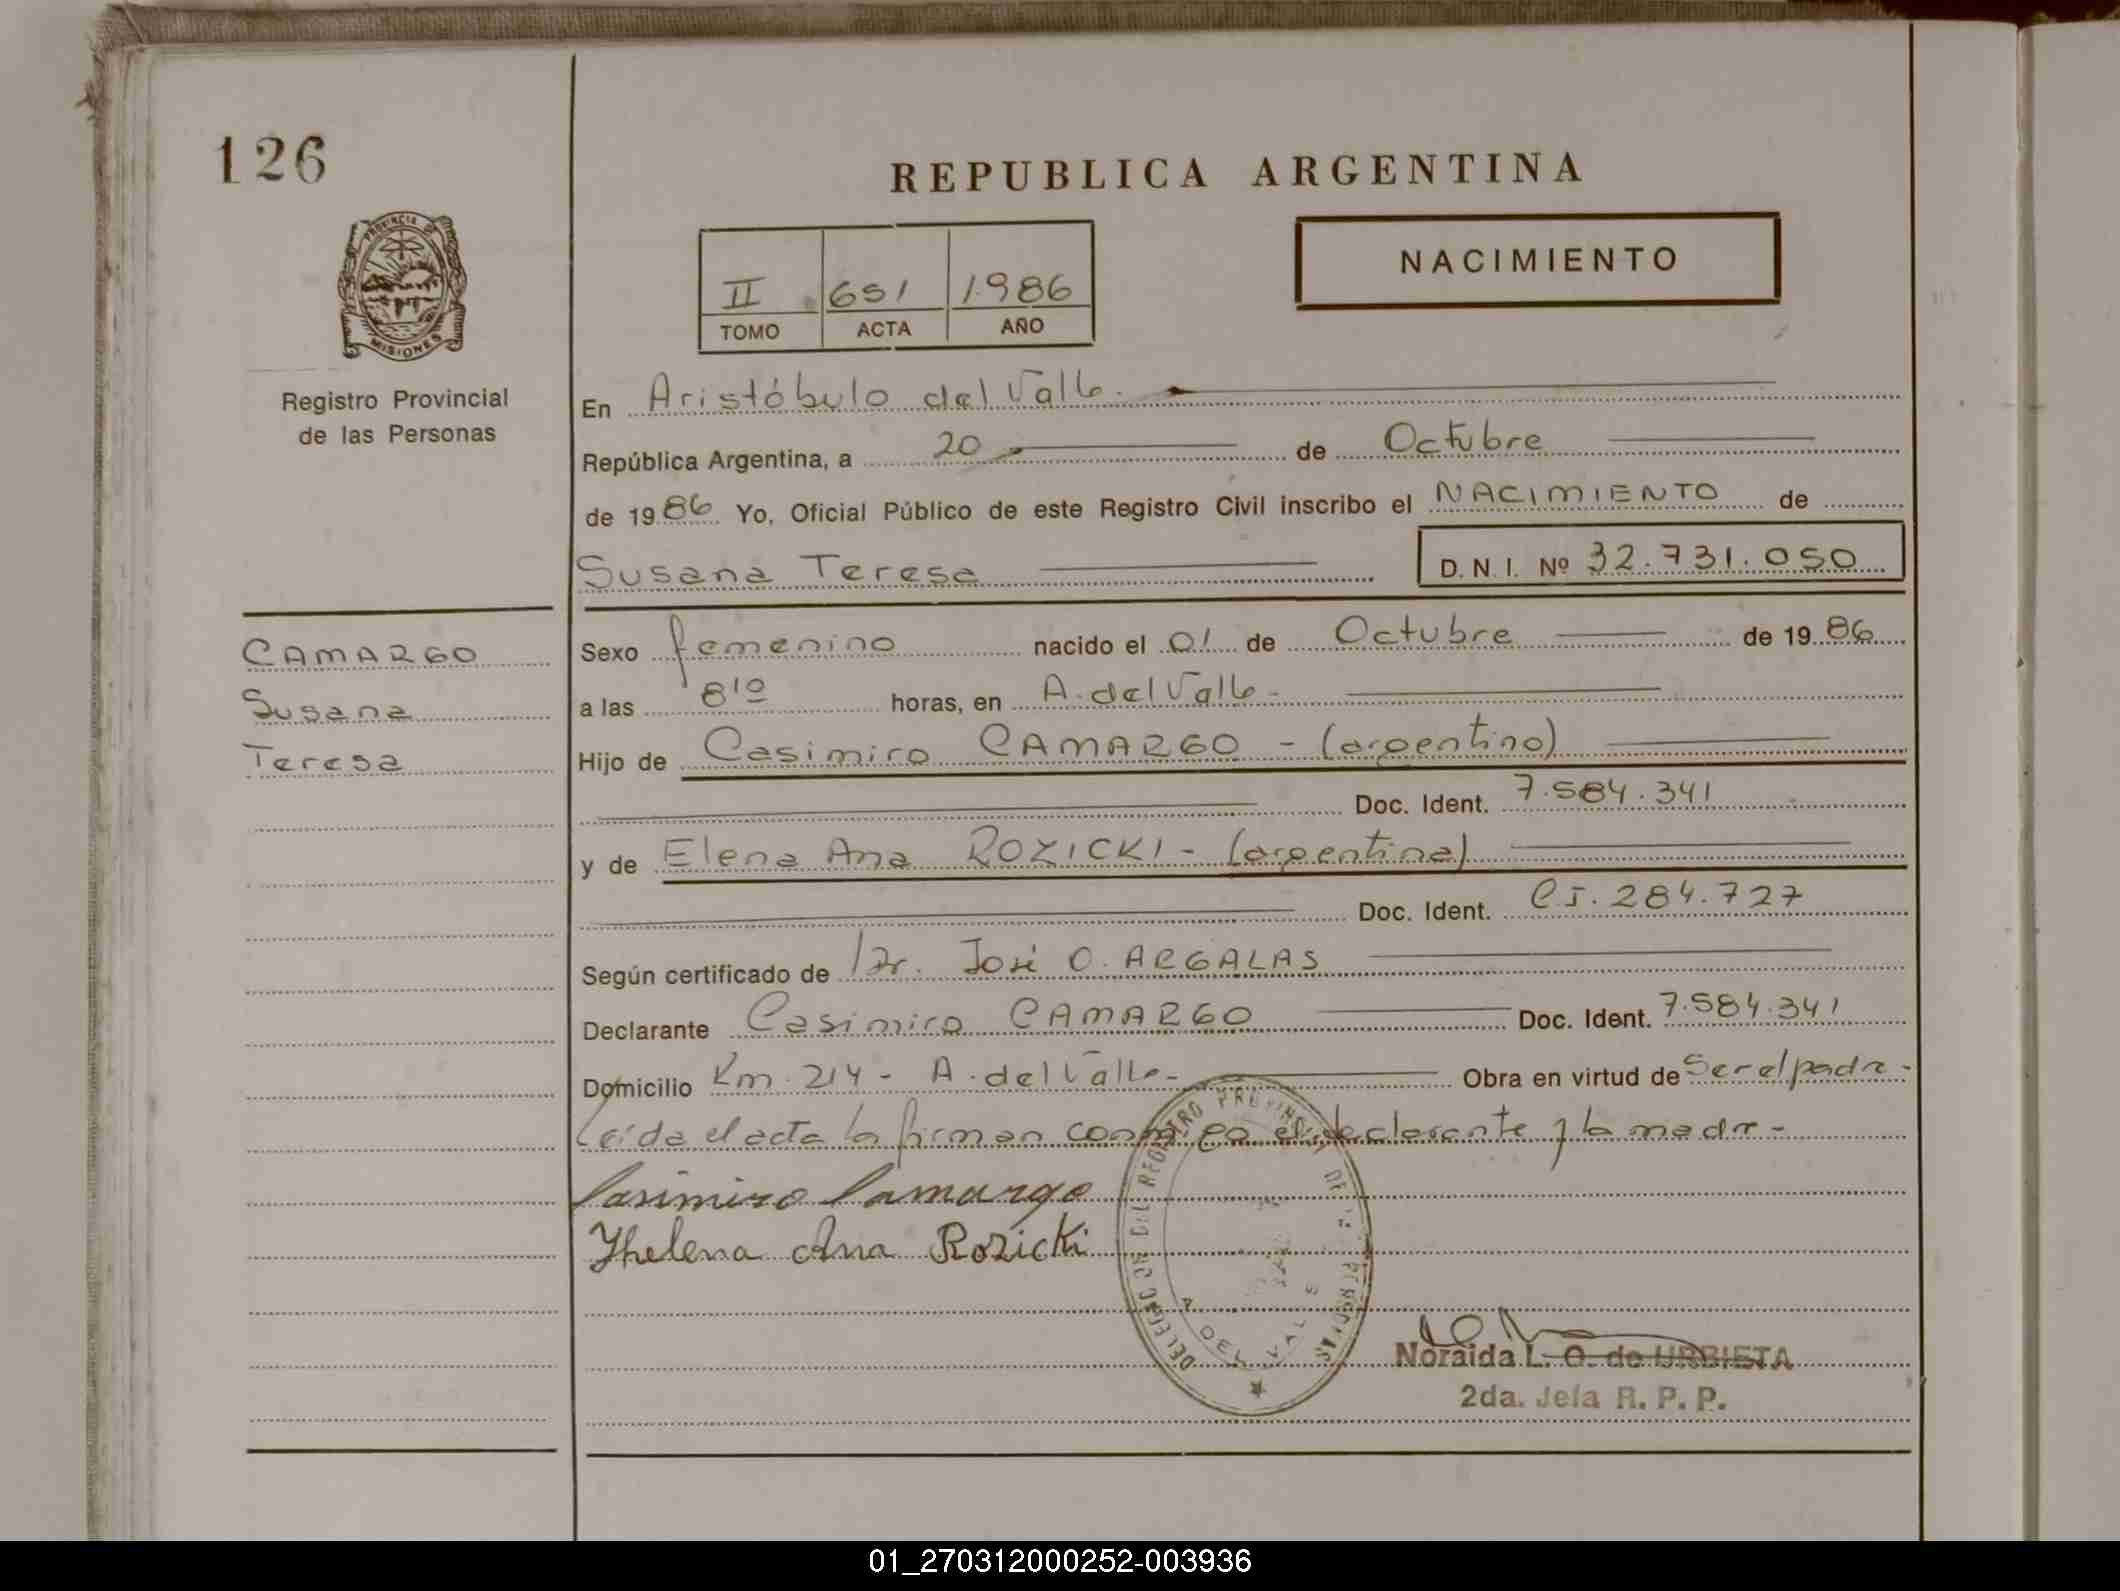 126
REPUBLICA ARGENTINA
PROVINCIA DE
MISIONES
Registro Provincial
de las Personas
II 651 1.986
TOMO ACTA AÑO
NACIMIENTO
En Aristóbulo del Valle.
República Argentina, a 20 de Octubre
de 1986 Yo, Oficial Público de este Registro Civil inscribo el NACIMIENTO de
Susana Teresa D. N. I. Nº 32.731.050
CAMARGO
Susana
Teresa
Sexo femenino nacido el 01 de Octubre de 1986
a las 8 10 horas, en A. del Valle-
Hijo de Casimiro CAMARGO - (argentino)
Doc. Ident. 7.584.341
y de Elena Ana ROZICKI - (argentina)
Doc. Ident. C.I. 284.727
Según certificado de Dr. José O. ARGALAS
Declarante Casimiro CAMARGO Doc. Ident. 7.584.341
Domicilio Km. 214 - A. del Valle- Obra en virtud de Ser el padre-
Leída el acta la firman conmigo el declarante y la madre-
Casimiro Camargo
Yhelena Ana Rozicki
DELEGACION DEL REGISTRO PROVINCIAL DE LAS PERSONAS
A. DEL VALLE
Noraida L. O. de URBIETA
2da. Jefa R. P. P.
01_270312000252-003936